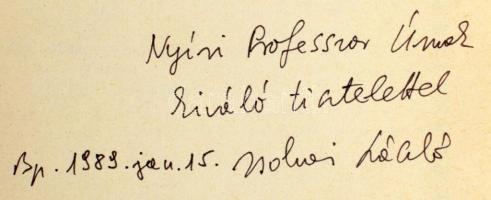 Nyíri Professzor Úrnak
kiváló tisztelettel
Bp. 1989. jan. 15. Zolnai László